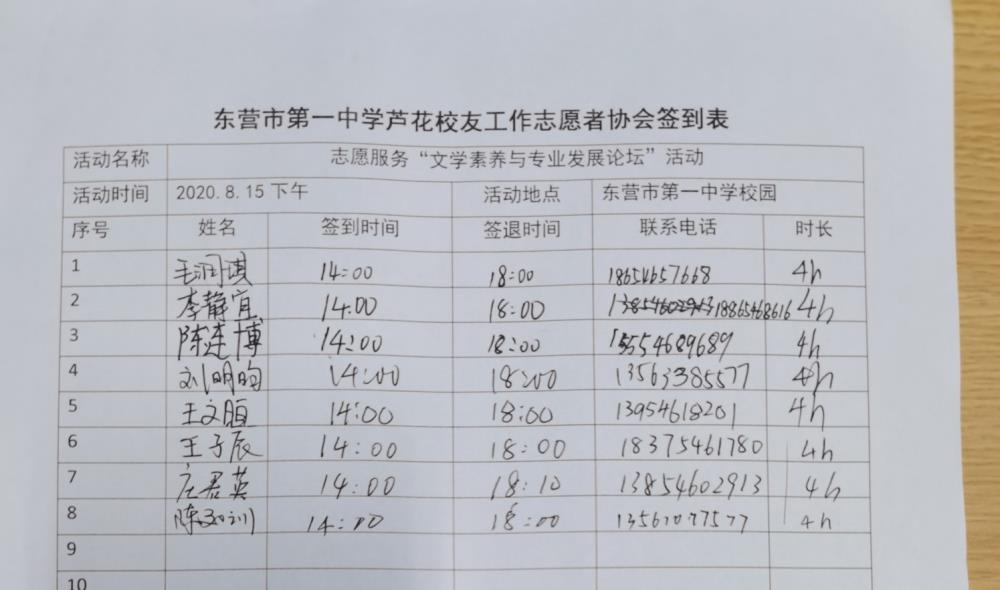 东营市第一中学芦花校友工作志愿者协会签到表
活动名称 志愿服务“文学素养与专业发展论坛”活动
活动时间 2020.8.15下午 活动地点 东营市第一中学校园
序号 姓名 签到时间 签退时间 联系电话 时长
1 毛润琪 14:00 18:00 18654657668 4h
2 李静宜 14:00 18:00 18865468616 4h
3 陈建博 14:00 18:00 15554689689 4h
4 刘明昀 14:00 18:00 13563385577 4h
5 王文 14:00 18:00 13954618201 4h
6 王子辰 14:00 18:00 18375461780 4h
7 庄君英 14:00 18:10 13854602913 4h
8 14:00 18:00 4h
9
10